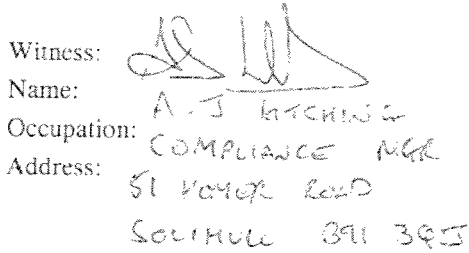 Witness:
Name: A. J
Occupation: COMPLIANCE MGR
Address: 51 ROAD
SOLIHULL B91 3QJ